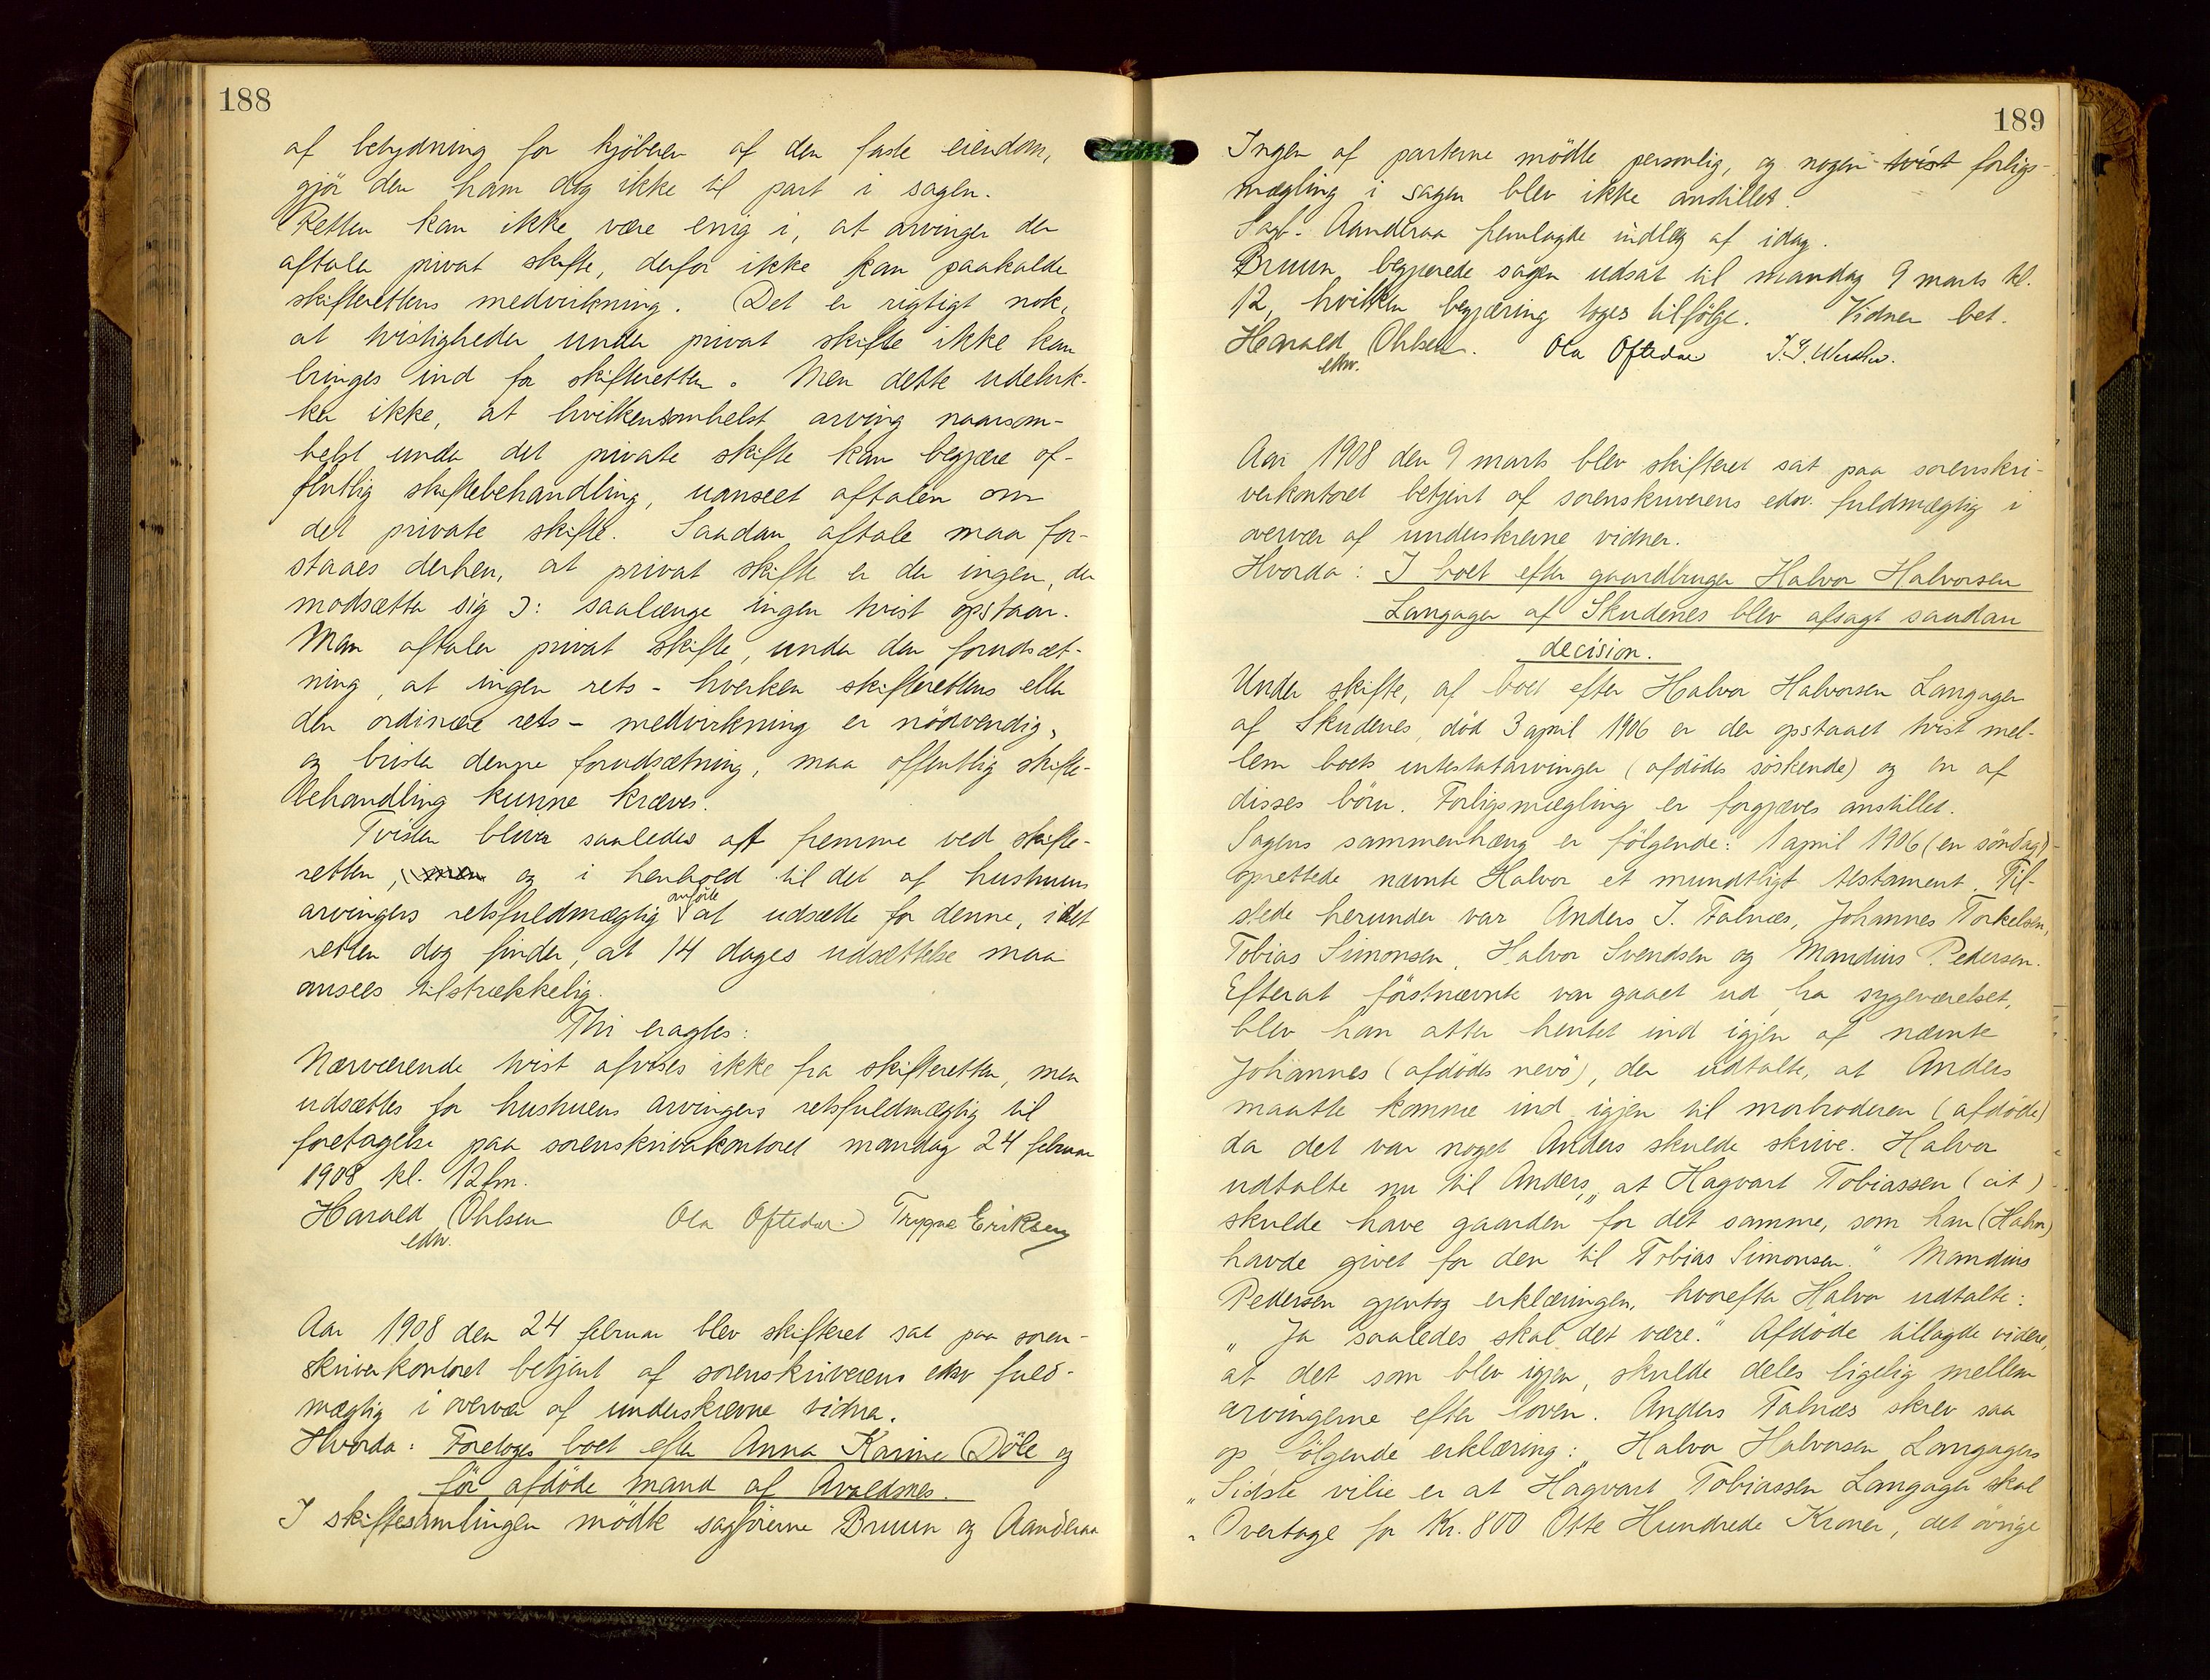 188
af betydning for kjöberen af den faste eiendom,
gjör den ham dog ikke til part i sagen.
Retten kan ikke være enig i, at arvinger der
aftaler privat skifte, derfor ikke kan paakalde
skifterettens medvirkning. Det er rigtigt nok,
at tvistigheder under privat skifte ikke kan
bringes ind for skifteretten. Men dette udeluk-
ker ikke, at hvilkensomhelst arving naarsom-
helst under det private skifte kan begjære of-
fentlig skiftebehandling, uanseet aftalen om
det private skifte. Saadan aftale maa for-
staaes derhen, at privat skifte er der ingen, der
modsætter sig ɔ: saalænge ingen tvist opstaar.
Man aftaler privat skifte, under den forudsæt-
ning, at ingen rets- hverken skifterettens eller
den ordinære rets- medvirkning er nödvendig,
og brister denne forudsætning, maa offentlig skifte-
behandling kunne kræves.
Tvisten bliver saaledes at fremme ved skifte-
retten, men og i henhold til det af hustruens
arvingers retsfuldmægtig anförte at udsætte for denne, idet
retten dog finder, at 14 dages udsættelse maa
ansees tilstrækkelig.
Thi eragtes:
Nærværende tvist afvises ikke fra skifteretten, men
udsættes for hustruens arvingers retsfuldmægtig til
foretagelse paa sorenskriverkontoret mandag 24 februar
1908 kl. 12 fm.
Harald Ohlsen Ola Oftedal Trygve Eriksen
edsv.
Aar 1908 den 24 februar blev skifteret sat paa soren-
skriverkontoret betjent af sorenskriverens edsv fuld-
mægtig i overvær af underskrevne vidner.
Hvorda: Foretoges boet efter Anna Karine Döle og
för afdöde mand af Avaldsnes.
I skiftesamlingen mödte sagförerne Bruun og Aanderaa
189
Ingen af parterne mödte personlig, og nogen tvist forligs-
mægling i sagen blev ikke anstillet.
Sagf. Aanderaa fremlagde indlæg af idag.
Bruun begjærede sagen udsat til mandag 9 marts kl.
12, hvilken begjæring toges tilfölge. Vidner bet.
Harald Ohlsen. Ola Oftedal
edsv.
Aar 1908 den 9 marts blev skifteret sat paa sorenskri-
verkontoret betjent af sorenskriverens edsv. fuldmægtig i
overvær af underskrevne vidner.
Hvorda: I boet efter gaardbruger Halvor Halvorsen
Langager af Skudenes blev afsagt saadan
decision.
Under skifte, af boet efter Halvor Halvorsen Langager
af Skudenes, död 3 april 1906 er der opstaaet tvist mel-
lem boets intestatarvinger (afdödes söskende) og en af
disses börn. Forligsmægling er forgjæves anstillet.
Sagens sammenhæng er fölgende: 1 april 1906 (en söndag)
oprettede nævnte Halvor et mundtligt testament. Til-
stede herunder var Anders I. Falnæs, Johannes Torkelsen,
Tobias Simonsen, Halvor Svendsen og Mandius Pedersen.
Efterat förstnævnte var gaaet ud fra sygeværelset,
blev han atter hentet ind igjen af nævnte
Johannes (afdödes nevö), der udtalte, at Anders
maatte komme ind igjen til morbroderen (afdöde)
da det var noget Anders skulde skrive. Halvor
udtalte nu til Anders, „at Hagvart Tobiassen (cit)
skulde have gaarden for det samme, som han (Halvor)
havde givet for den til Tobias Simonsen." Mandius
Pedersen gjentog erklæringen, hvorefter Halvor udtalte:
„Ja saaledes skal det være." Afdöde tillagde videre,
at det som blev igjen, skulde deles ligelig mellem
arvingerne efter loven. Anders Falnæs skrev saa
op fölgende erklæring: „Halvor Halvorsen Langagers
„Sidste vilie er at Hagvart Tobiassen Langager skal
„Overtage for Kr. 800 Otte Hundrede Kroner, det övrige